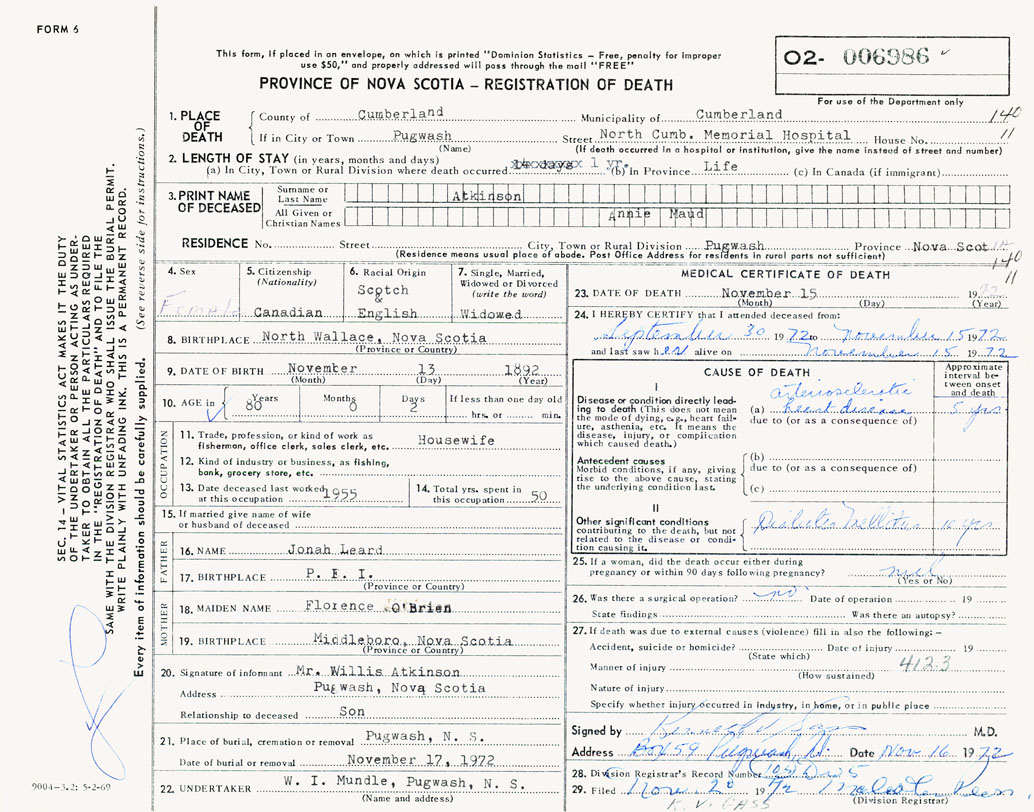 FORM 6
This form, if placed in an envelope, on which is printed "Dominion Statistics – Free, penalty for improper
use $50," and properly addressed will pass through the mail "FREE"
O2- 006986
For use of the Department only
PROVINCE OF NOVA SCOTIA – REGISTRATION OF DEATH
SEC. 14 – VITAL STATISTICS ACT MAKES IT THE DUTY
OF THE UNDERTAKER OR PERSON ACTING AS UNDER-
TAKER TO OBTAIN ALL THE PARTICULARS REQUIRED
IN THE "REGISTRATION OF DEATH" AND TO FILE THE
SAME WITH THE DIVISION REGISTRAR WHO SHALL ISSUE THE BURIAL PERMIT.
WRITE PLAINLY WITH UNFADING INK. THIS IS A PERMANENT RECORD.
Every item of information should be carefully supplied. (See reverse side for instructions.)
1. PLACE OF DEATH
County of Cumberland Municipality of Cumberland 140
If in City or Town Pugwash Street North Cumb. Memorial Hospital House No. 11
(Name) (If death occurred in a hospital or institution, give the name instead of street and number)
2. LENGTH OF STAY (in years, months and days)
(a) In City, Town or Rural Division where death occurred 14 days 1 yr. (b) In Province Life (c) In Canada (if immigrant)
3. PRINT NAME OF DECEASED
Surname or Last Name Atkinson
All Given or Christian Names Annie Maud
RESIDENCE No. Street City, Town or Rural Division Pugwash Province Nova Scotia
(Residence means usual place of abode. Post Office Address for residents in rural parts not sufficient) 140
11
4. Sex Female
5. Citizenship (Nationality) Canadian
6. Racial Origin Scotch & English
7. Single, Married, Widowed or Divorced (write the word) Widowed
8. BIRTHPLACE North Wallace, Nova Scotia
(Province or Country)
9. DATE OF BIRTH November 13 1892
(Month) (Day) (Year)
10. AGE in Years 80 Months 0 Days 2 If less than one day old hrs. or min.
OCCUPATION
11. Trade, profession, or kind of work as fisherman, office clerk, sales clerk, etc. Housewife
12. Kind of industry or business, as fishing, bank, grocery store, etc.
13. Date deceased last worked at this occupation 1955
14. Total yrs. spent in this occupation 50
15. If married give name of wife or husband of deceased
FATHER
16. NAME Jonah Leard
17. BIRTHPLACE P. E. I.
(Province or Country)
MOTHER
18. MAIDEN NAME Florence O'Brien
19. BIRTHPLACE Middleboro, Nova Scotia
(Province or Country)
20. Signature of informant Mr. Willis Atkinson
Address Pugwash, Nova Scotia
Relationship to deceased Son
21. Place of burial, cremation or removal Pugwash, N. S.
Date of burial or removal November 17, 1972
22. UNDERTAKER W. I. Mundle, Pugwash, N. S.
(Name and address)
9004-3.2: 5-2-69
MEDICAL CERTIFICATE OF DEATH
23. DATE OF DEATH November 15 1972
(Month) (Day) (Year)
24. I HEREBY CERTIFY that I attended deceased from:
September 30 1972 to November 15 1972
and last saw her alive on November 15 1972
CAUSE OF DEATH
Approximate interval between onset and death
I
Disease or condition directly leading to death (This does not mean the mode of dying, e.g., heart failure, asthenia, etc. It means the disease, injury, or complication which caused death.)
(a) arteriosclerotic heart disease 5 yrs
due to (or as a consequence of)
Antecedent causes
Morbid conditions, if any, giving rise to the above cause, stating the underlying condition last.
(b)
due to (or as a consequence of)
(c)
II
Other significant conditions contributing to the death, but not related to the disease or condition causing it.
Diabetes Mellitus 10 yrs
25. If a woman, did the death occur either during pregnancy or within 90 days following pregnancy?
(Yes or No)
26. Was there a surgical operation? no Date of operation 19
State findings Was there an autopsy?
27. If death was due to external causes (violence) fill in also the following: –
Accident, suicide or homicide? Date of injury 19
(State which)
Manner of injury 4123
(How sustained)
Nature of injury
Specify whether injury occurred in industry, in home, or in public place
Signed by M.D.
Address Box 59 Pugwash, NS. Date Nov 16 1972
28. Division Registrar's Record Number
29. Filed Nov. 20 1972
(Division Registrar)
K. V. GASS